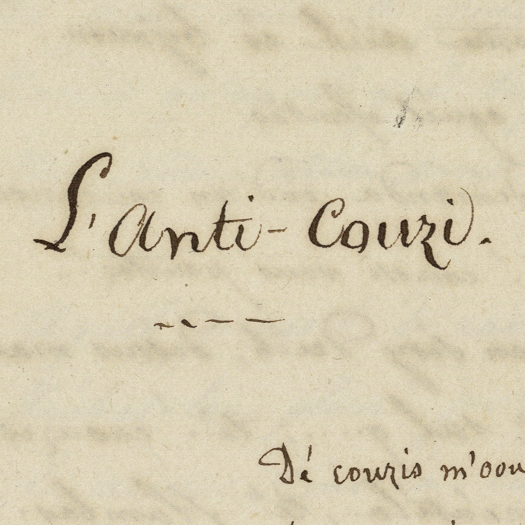 L'Anti-Couzi.
Dé couzis m'oou